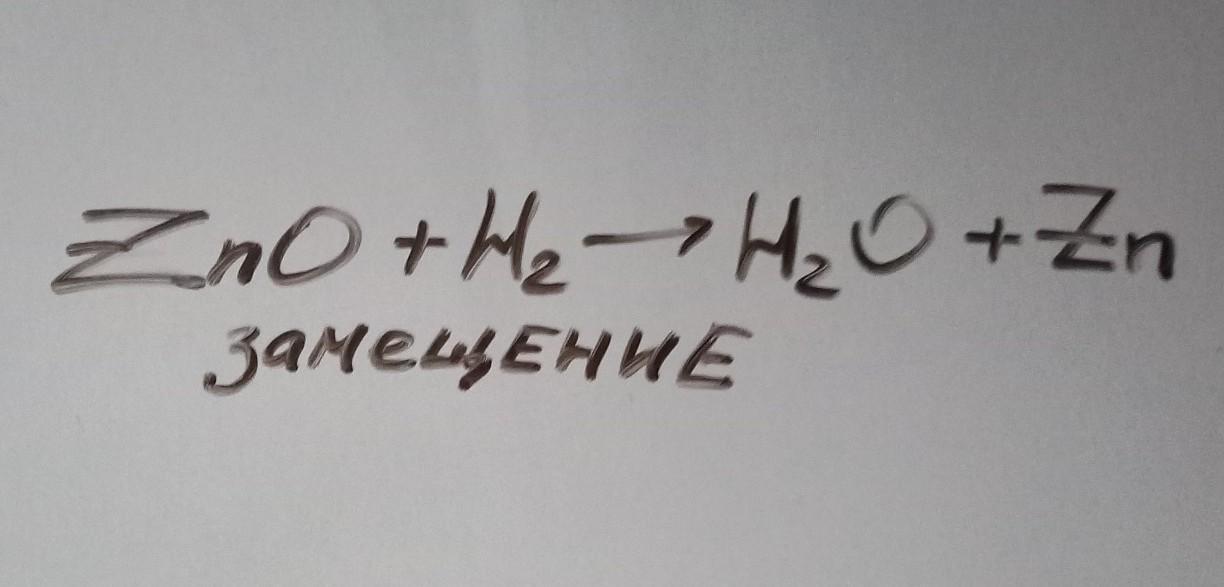 ZnO + H₂ → H₂O + Zn
замещЕНИЕ